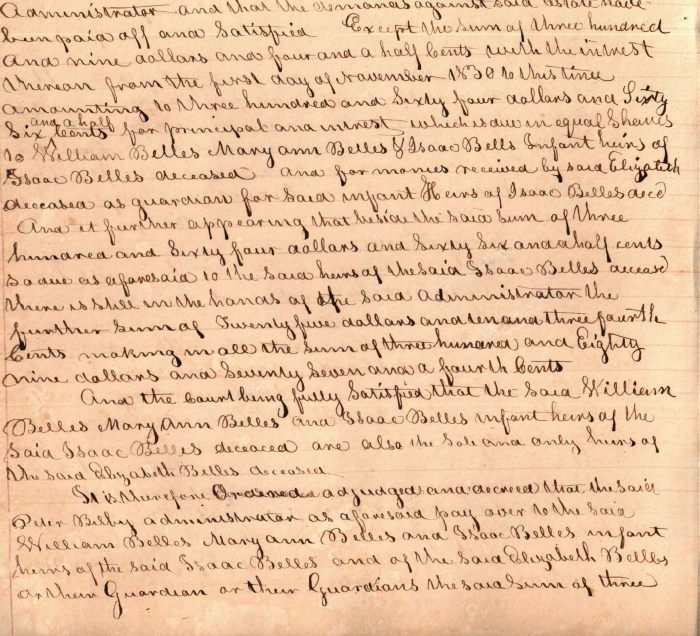 Administrator and that the demands against said estate have
been paid off and Satisfied Except the Sum of three hundred
and nine dollars and four and a half Cents with the intrest
thereon from the first day of November 1830 to this time
amounting to three hundred and Sixty four dollars and Sixty
and a half
Six Cents for principal and intrest which is due in equal Shares
to William Belles Mary ann Belles & Isaac Bells Infant heirs of
Isaac Belles deceased and for monies received by said Elizabeth
deceased as guardian for Said infant Heirs of Isaac Belles decd
And it further appearing that beside the Said Sum of three
hundred and Sixty four dollars and Sixty Six and a half cents
so due as aforesaid to the Said heirs of the Said Isaac Belles deceasd
there is still in the hands of the said administrator the
further Sum of Twenty five dollars and ten and three fourth
Cents making in all the Sum of three hundred and Eighty
nine dollars and Seventy Seven and a fourth Cents
And the Court being fully Satisfied that the Said William
Belles Mary Ann Belles and Isaac Belles infant heirs of the
Said Isaac Belles deceaced are also the Sole and only heirs of
the said Elizabeth Belles deceased
It is therefore Ordered adjudged and decreed that the said
Peter Bisby administrator as aforesaid pay over to the Said
William Belles Mary ann Belles and Isaac Belles infant
heirs of the Said Isaac Belles and of the Said Elizabeth Belles
or their Guardian or their Guardians the said Sum of three